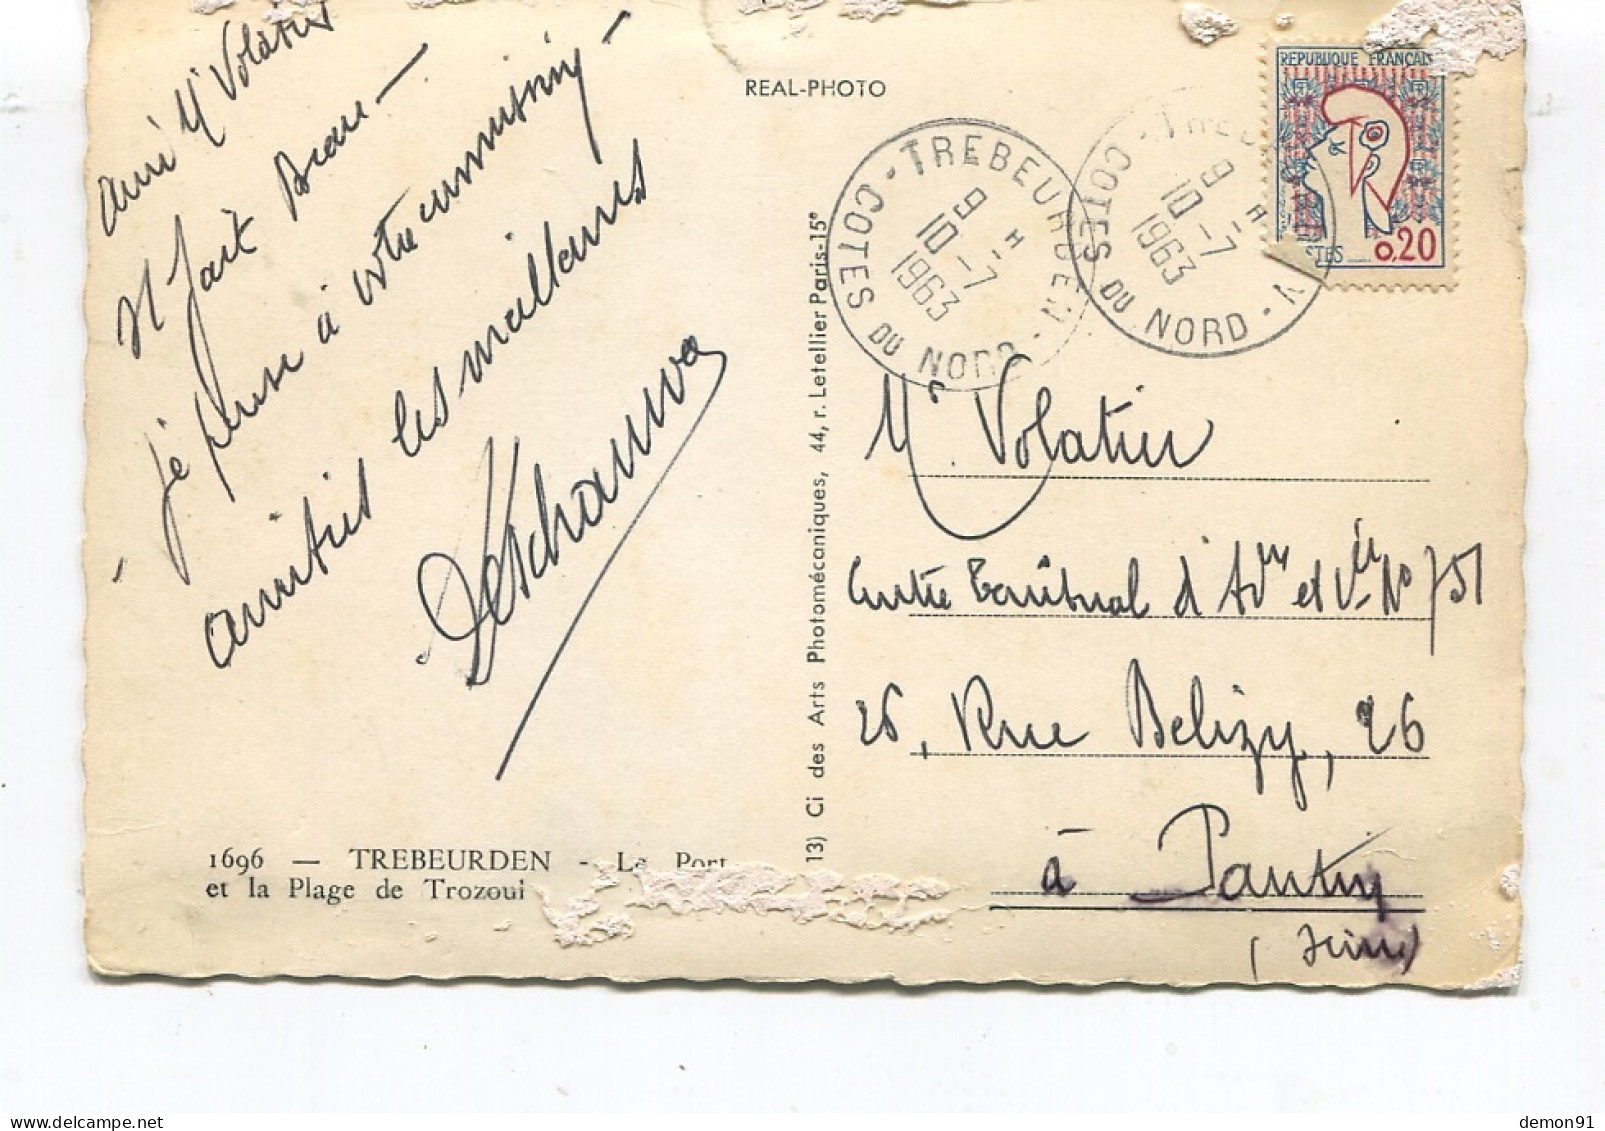 ami Mr Volatier
Il fait Beau —
je pense à votre camping —
amitiés les meilleures
REAL-PHOTO
TREBEURDEN - COTES DU NORD
9 H
10 -7
1963
TREBEURDEN - COTES DU NORD
9 H
10 -7
1963
REPUBLIQUE FRANÇAISE
POSTES
0,20
13) Ci des Arts Photomécaniques, 44, r. Letellier Paris-15e
Mr Volatier
Centre Territorial d' Nº 751
26, Rue Belizy, 26
à Pantin
(Seine)
1696 — TREBEURDEN - Le Port
et la Plage de Trozoul
demon91